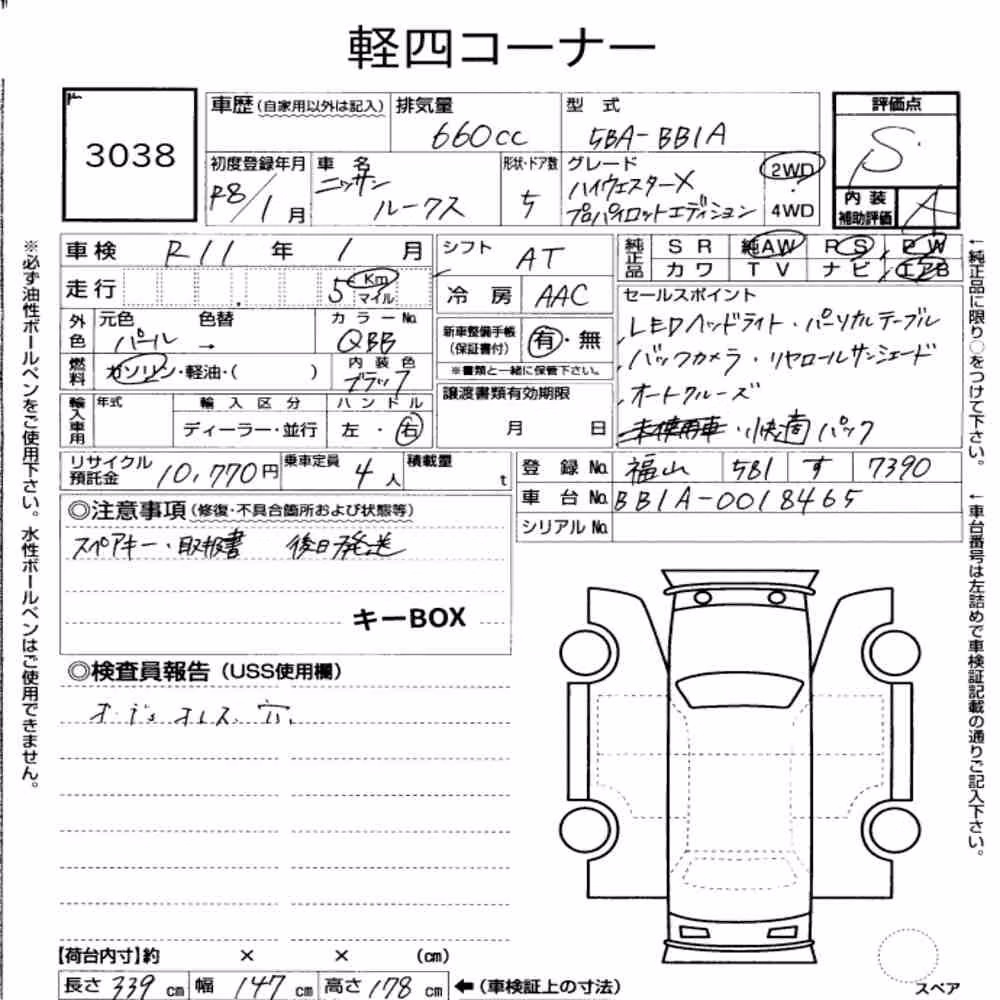 軽四コーナー
3038
車歴(自家用以外は記入) 排気量 型式 評価点
660cc 5BA-BB1A S
初度登録年月 車名 形状・ドア数 グレード 2WD
R8/1月 ニッサン ルークス 5 ハイウェスターX プロパイロットエディション 4WD
内装補助評価 A
車検 R11年 1月 シフト AT
純正品 SR 純AW PS PW
カワ TV ナビ エアB
走行 5 Km マイル 冷房 AAC
外色 元色 色替 カラーNo.
パール → QBB
新車整備手帳(保証書付) 有・無
※書類と一緒に保管下さい。
燃料 ガソリン・軽油・( ) 内装色 ブラック
セールスポイント
LEDヘッドライト・パーソナルテーブル
バックカメラ・リヤロールサンシェード
オートクルーズ
未使用車・快適パック
輸入車用 年式 輸入区分 ハンドル
ディーラー・並行 左・右
譲渡書類有効期限
月 日
リサイクル預託金 10,770円 乗車定員 4人 積載量 t
登録No. 福山 581 す 7390
車台No. BB1A-0018465
シリアルNo.
◎注意事項(修復・不具合箇所および状態等)
スペアキー・取扱書 後日発送
キーBOX
◎検査員報告(USS使用欄)
オーディオレス 穴
【荷台内寸】約 × × (cm)
長さ 339cm 幅 147cm 高さ 178cm ←(車検証上の寸法)
スペア
※必ず油性ボールペンをご使用下さい。水性ボールペンはご使用できません。
←純正品に限り○をつけて下さい。
←車台番号は左詰めで車検証記載の通りご記入下さい。